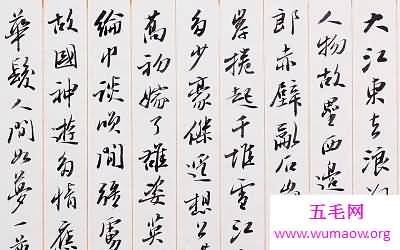 大江東去浪
人物故壘西邊
郎赤壁亂石
岸捲起千堆雪江
多少豪傑遥想公
喬初嫁了雄姿英
綸巾談笑間強虜
故國神遊多情應
華髮人間如夢一
五毛网
www.wumaow.org